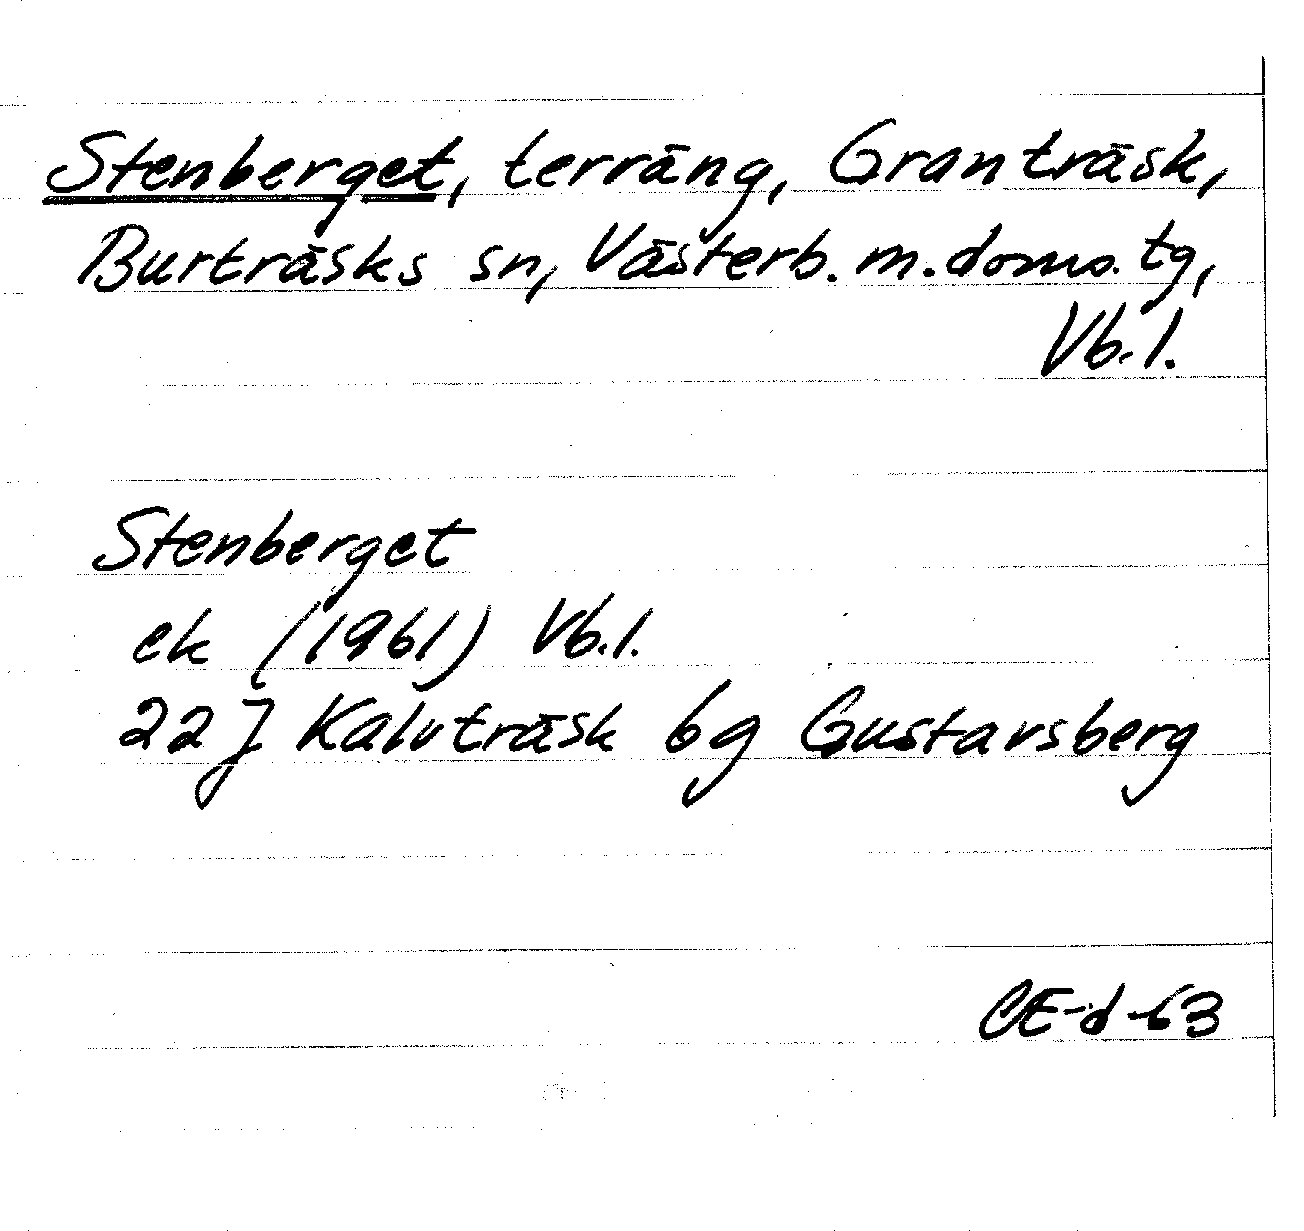 Stenberget, terräng, Granträsk,
Burträsks sn, Västerb. m. doms. tg,
Vb. l.
Stenberget
ek (1961) Vb. l.
22 J Kalvträsk 6g Gustavsberg
CE-d-63